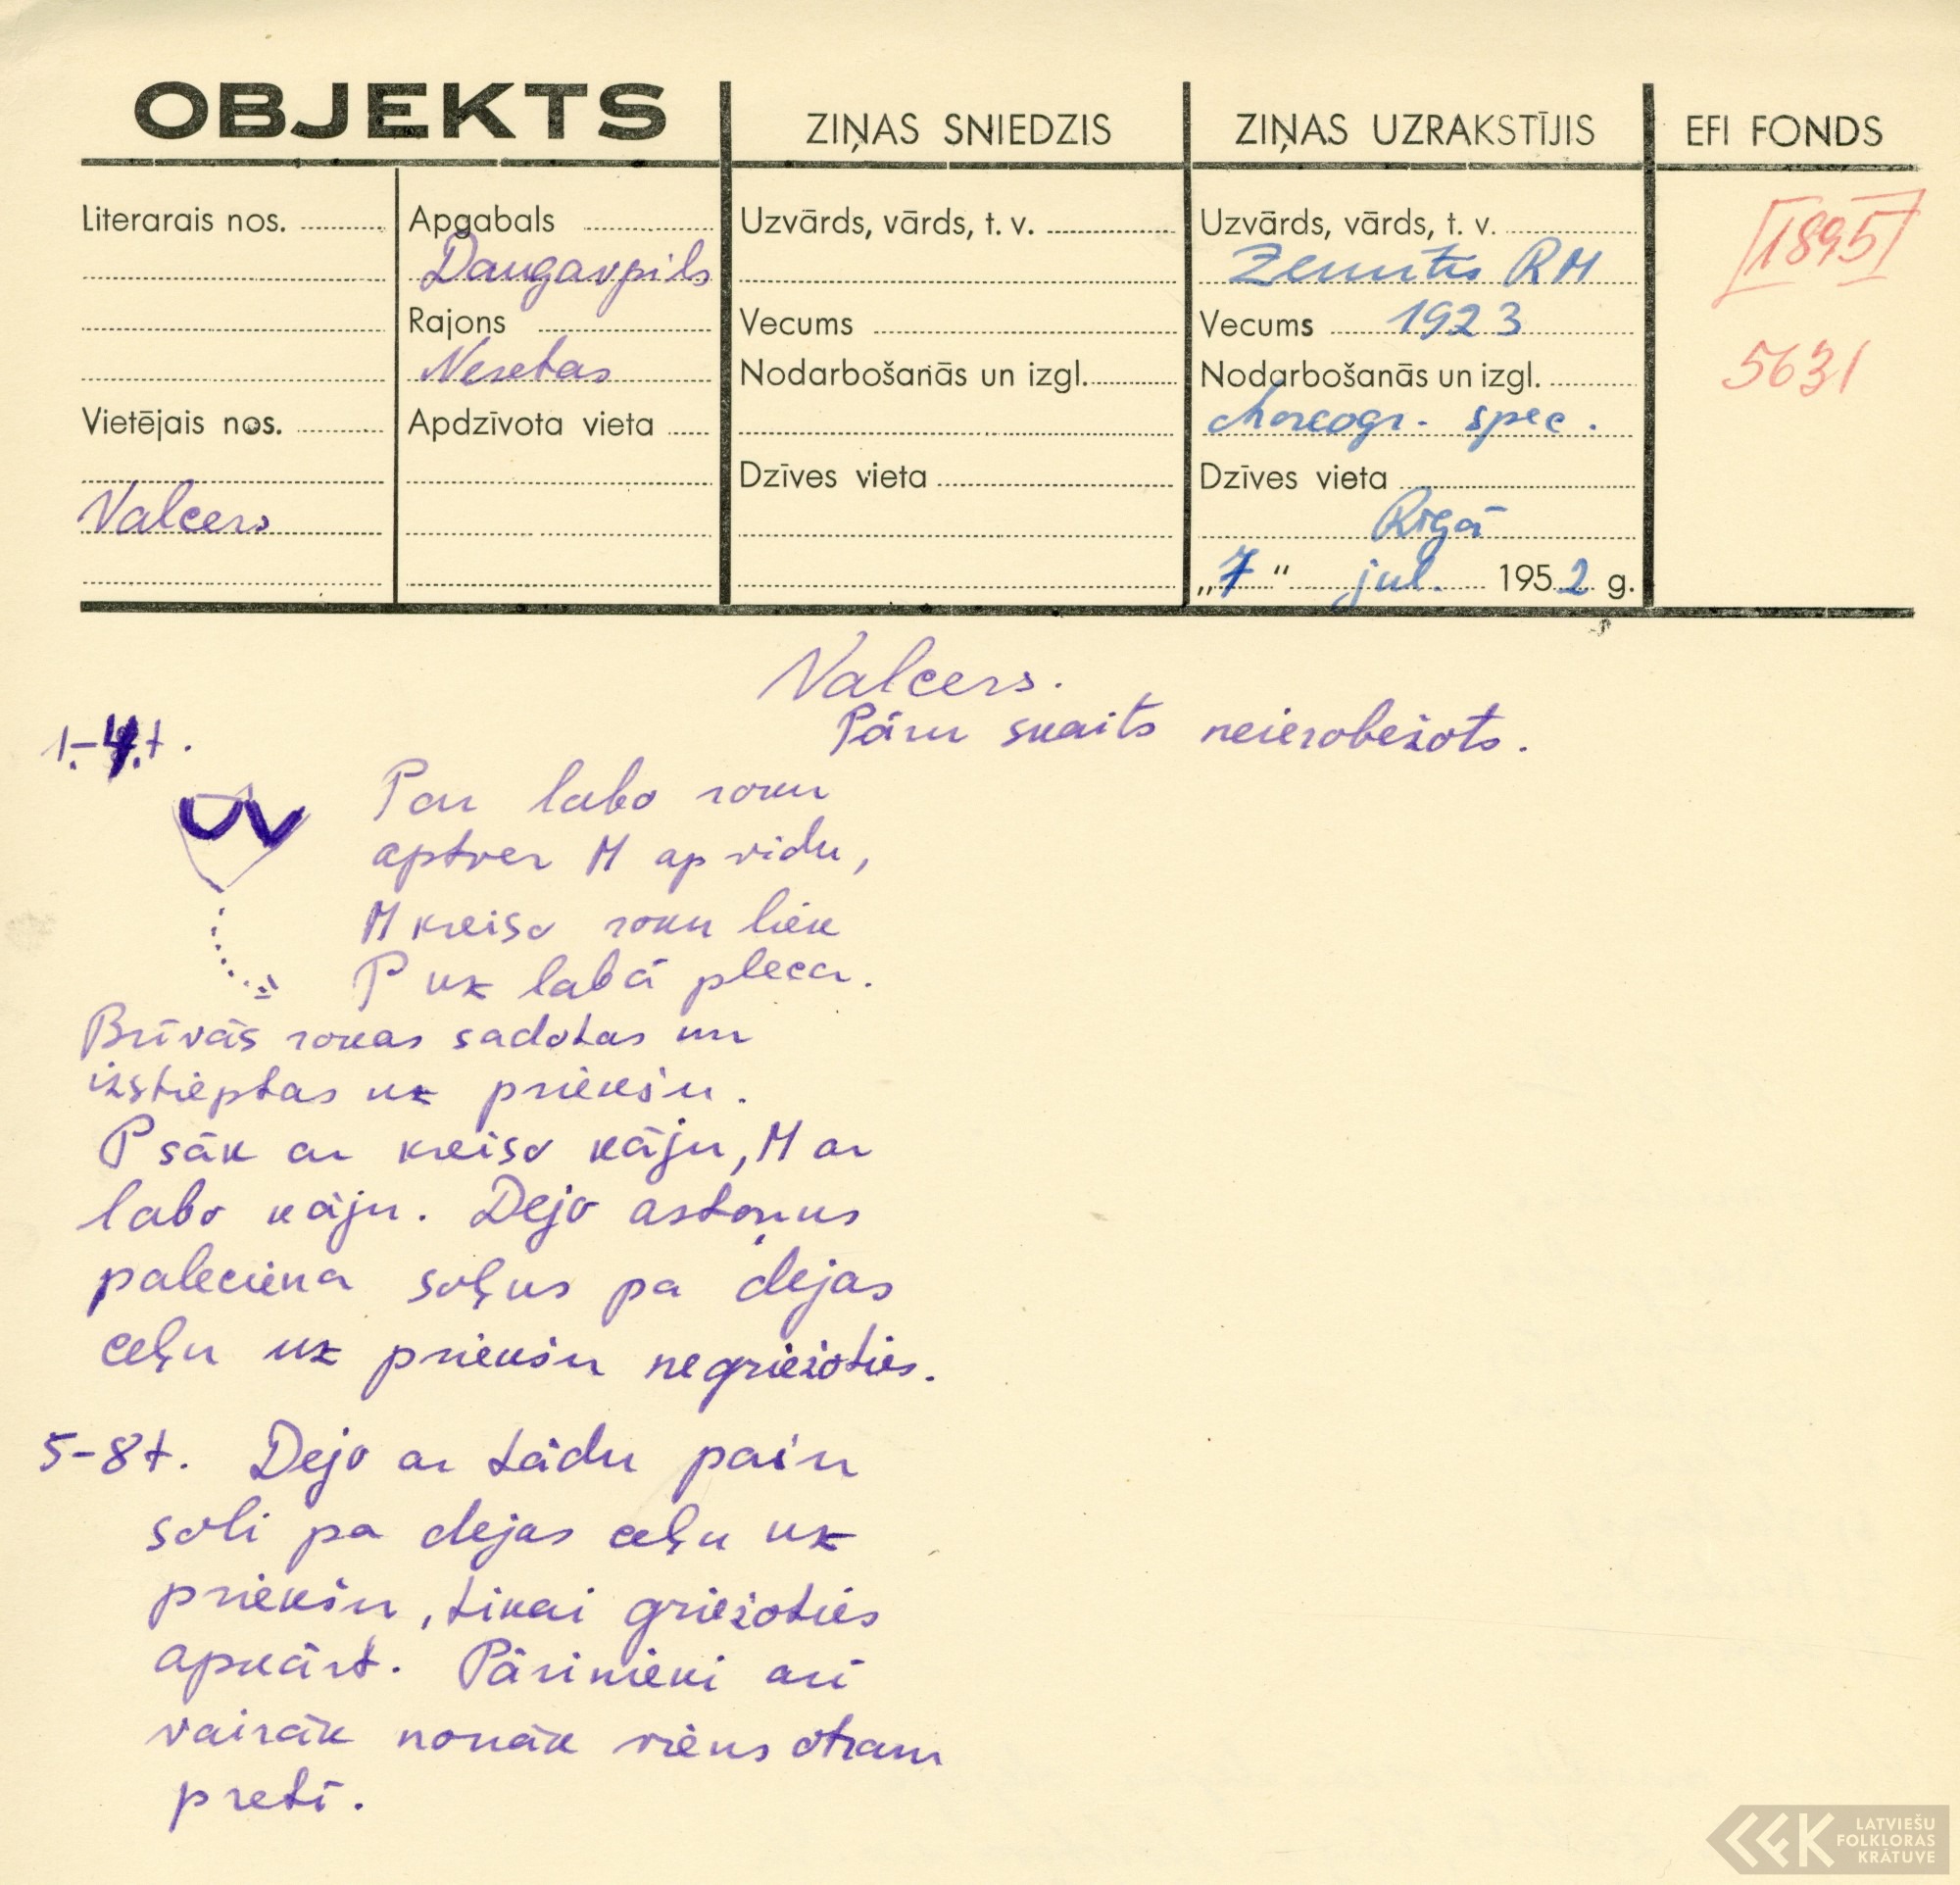 OBJEKTS
ZIŅAS SNIEDZIS
ZIŅAS UZRAKSTĪJIS
EFI FONDS
Literarais nos.
Vietējais nos.
Valcers
Apgabals
Daugavpils
Rajons
Neretas
Apdzīvota vieta
Uzvārds, vārds, t. v.
Vecums
Nodarbošanās un izgl.
Dzīves vieta
Uzvārds, vārds, t. v.
RM
Vecums 1923
Nodarbošanās un izgl.
choreogr. spec.
Dzīves vieta
Rīgā
„7“ jul. 1952 g.
1895
5631
Valcers.
Pāru skaits neierobežots.
1.-4.t.
P ar labo roku
aptver M ap vidu,
M kreiso roku liek
P uz labā pleca.
Brīvās rokas sadotas un
izstieptas uz priekšu.
P sāk ar kreiso kāju, M ar
labo kāju. Dejo astoņus
paleciena soļus pa dejas
ceļu uz priekšu negriežoties.
5-8t. Dejo ar tādu pašu
soli pa dejas ceļu uz
priekšu, tikai griežoties
apkārt. Pārinieki arī
vairāk nonāk viens otram
pretī.
LATVIEŠU
FOLKLORAS
KRĀTUVE